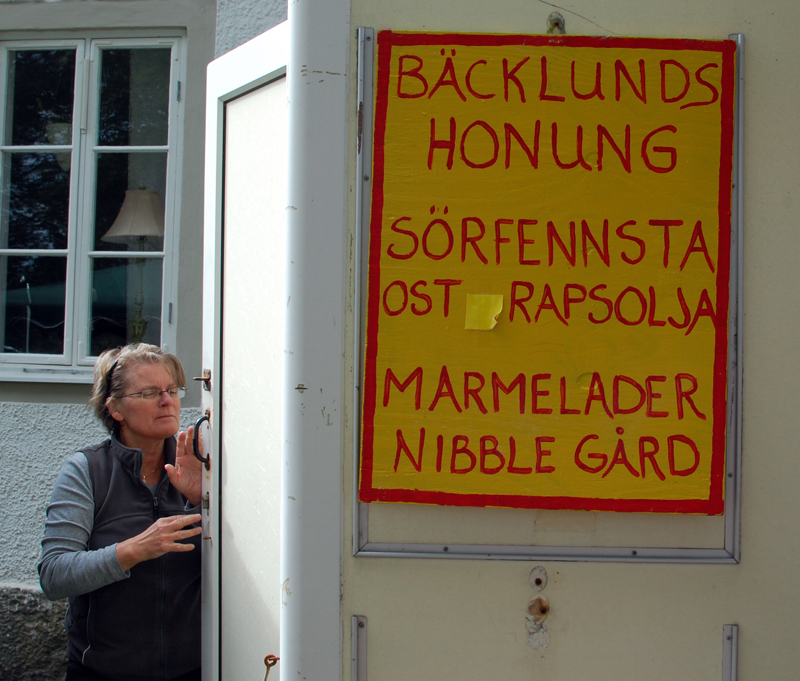 BÄCKLUNDS
HONUNG
SÖRFENNSTA
OST RAPSOLJA
MARMELADER
NIBBLE GÅRD